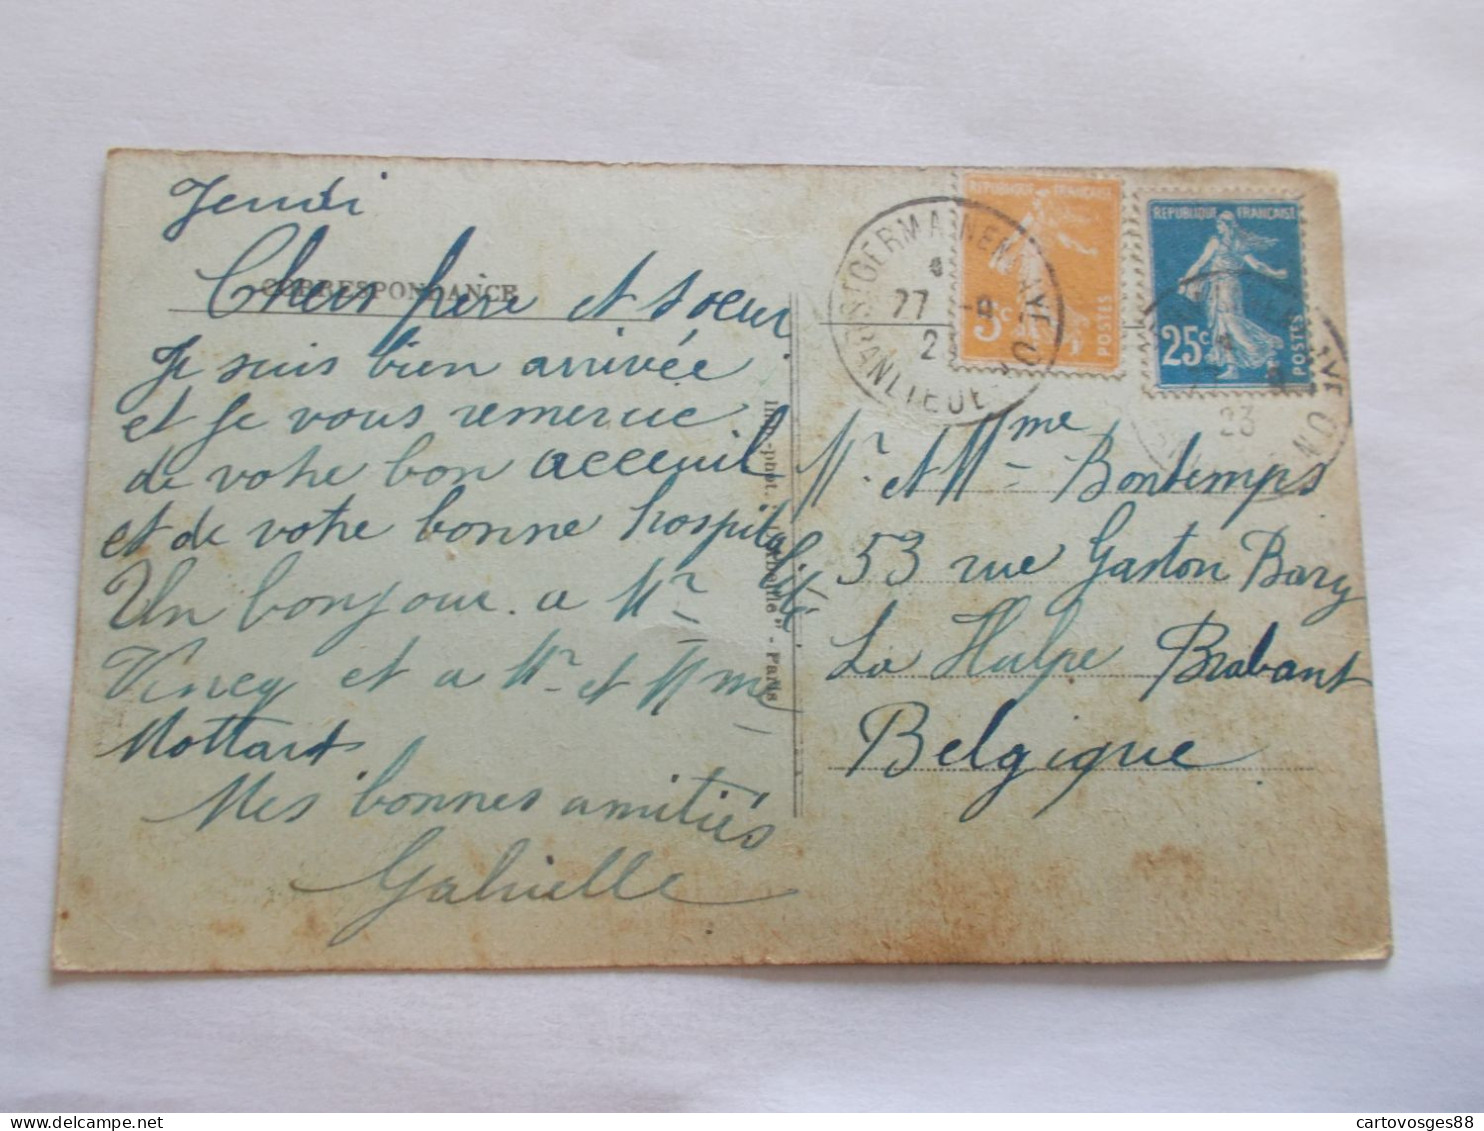 Jeudi
CORRESPONDANCE
Chers frère et sœur
Je suis bien arrivée
et je vous remercie
de votre bon acceuil
et de votre bonne hospitalité
Un bonjour a Mr
et a Mr et Mme
Mottart
Mes bonnes amitiés
Gabrielle
Paris
ST GERMAIN EN LAYE
27 -9
2
BANLIEUE
REPUBLIQUE FRANÇAISE
5c
POSTES
REPUBLIQUE FRANÇAISE
25c
POSTES
23
Mr et Mme Bontemps
53 rue Gaston Bary
La Hulpe Brabant
Belgique
cartovosges88